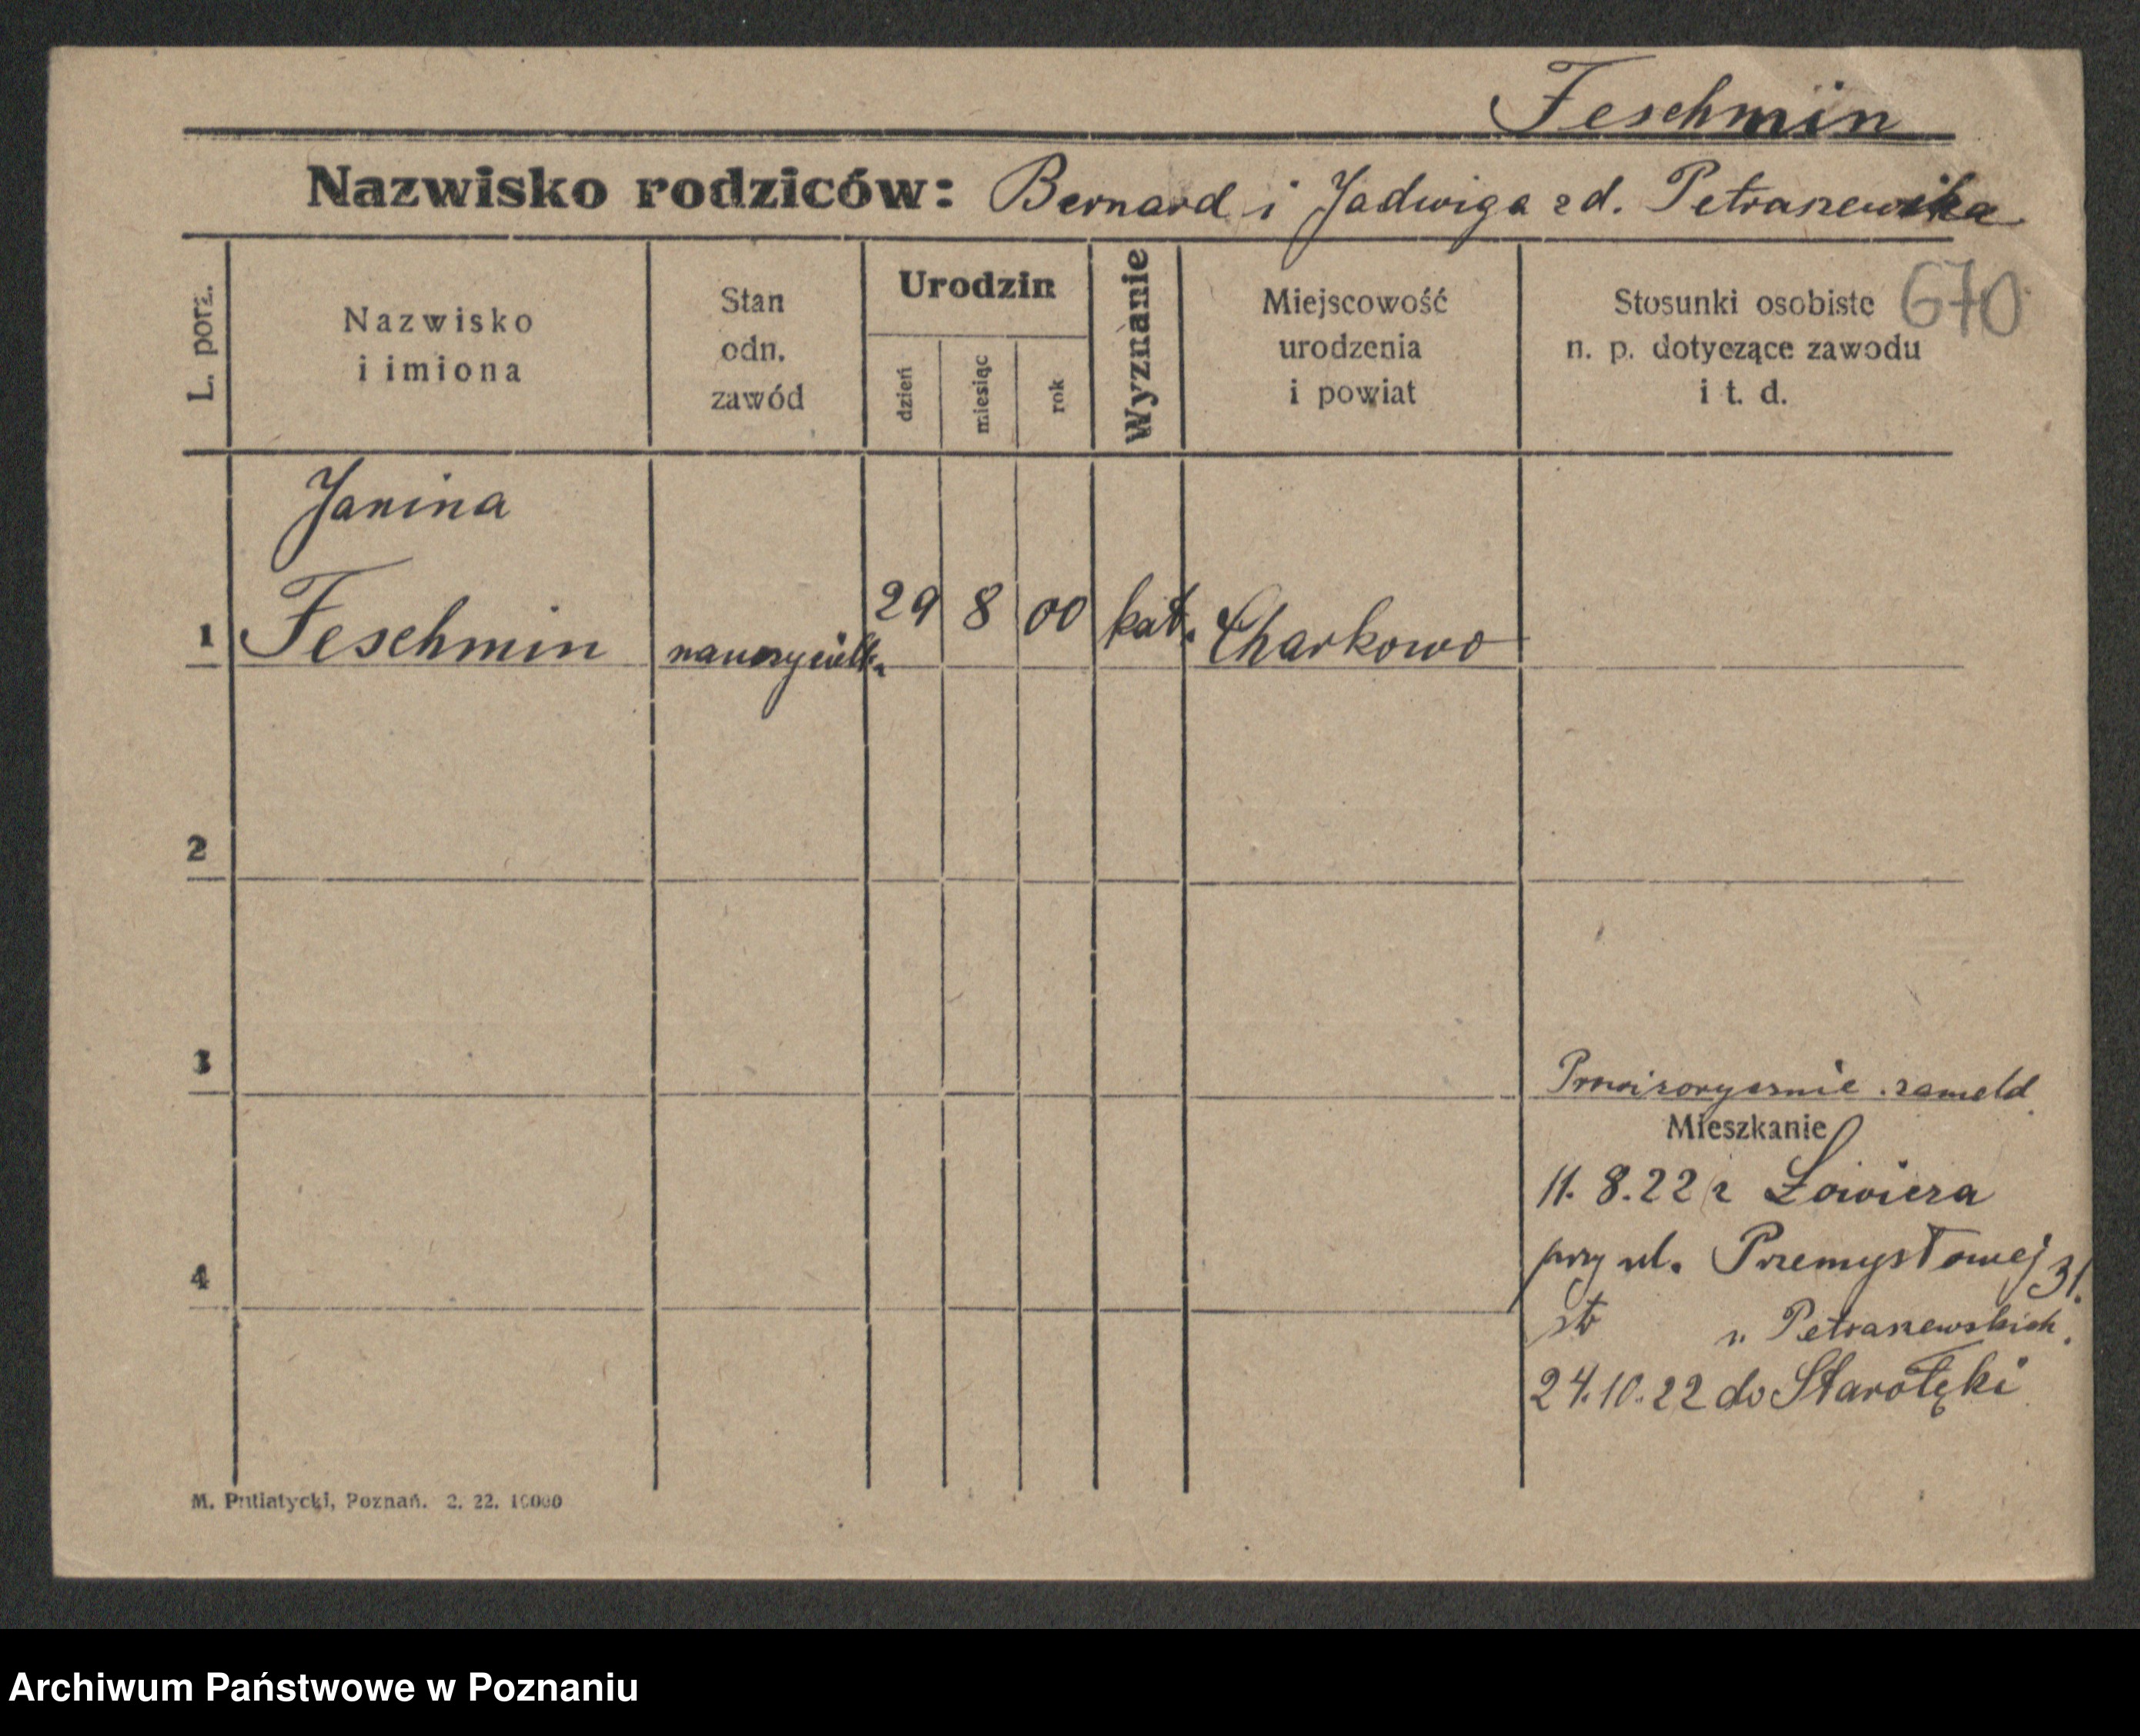 Feschmin
Nazwisko rodziców: Bernard i Jadwiga zd. Petraszewska
670
L. porz.
Nazwisko
i imiona
Stan
odn.
zawód
Urodzin
dzień
miesiąc
rok
Wyznanie
Miejscowość
urodzenia
i powiat
Stosunki osobiste
n. p. dotyczące zawodu
i t. d.
Janina
1 Feschmin nauczycielka 29 8 00 kat. Charkowo
2
3
Prowizorycznie zameld.
Mieszkanie
11. 8. 22 z Łowicza
przy ul. Przemysłowej 31.
4
u Petraszewskich.
24.10.22 do Starołęki
M. Putiatycki, Poznań. 2. 22. 10000
Archiwum Państwowe w Poznaniu